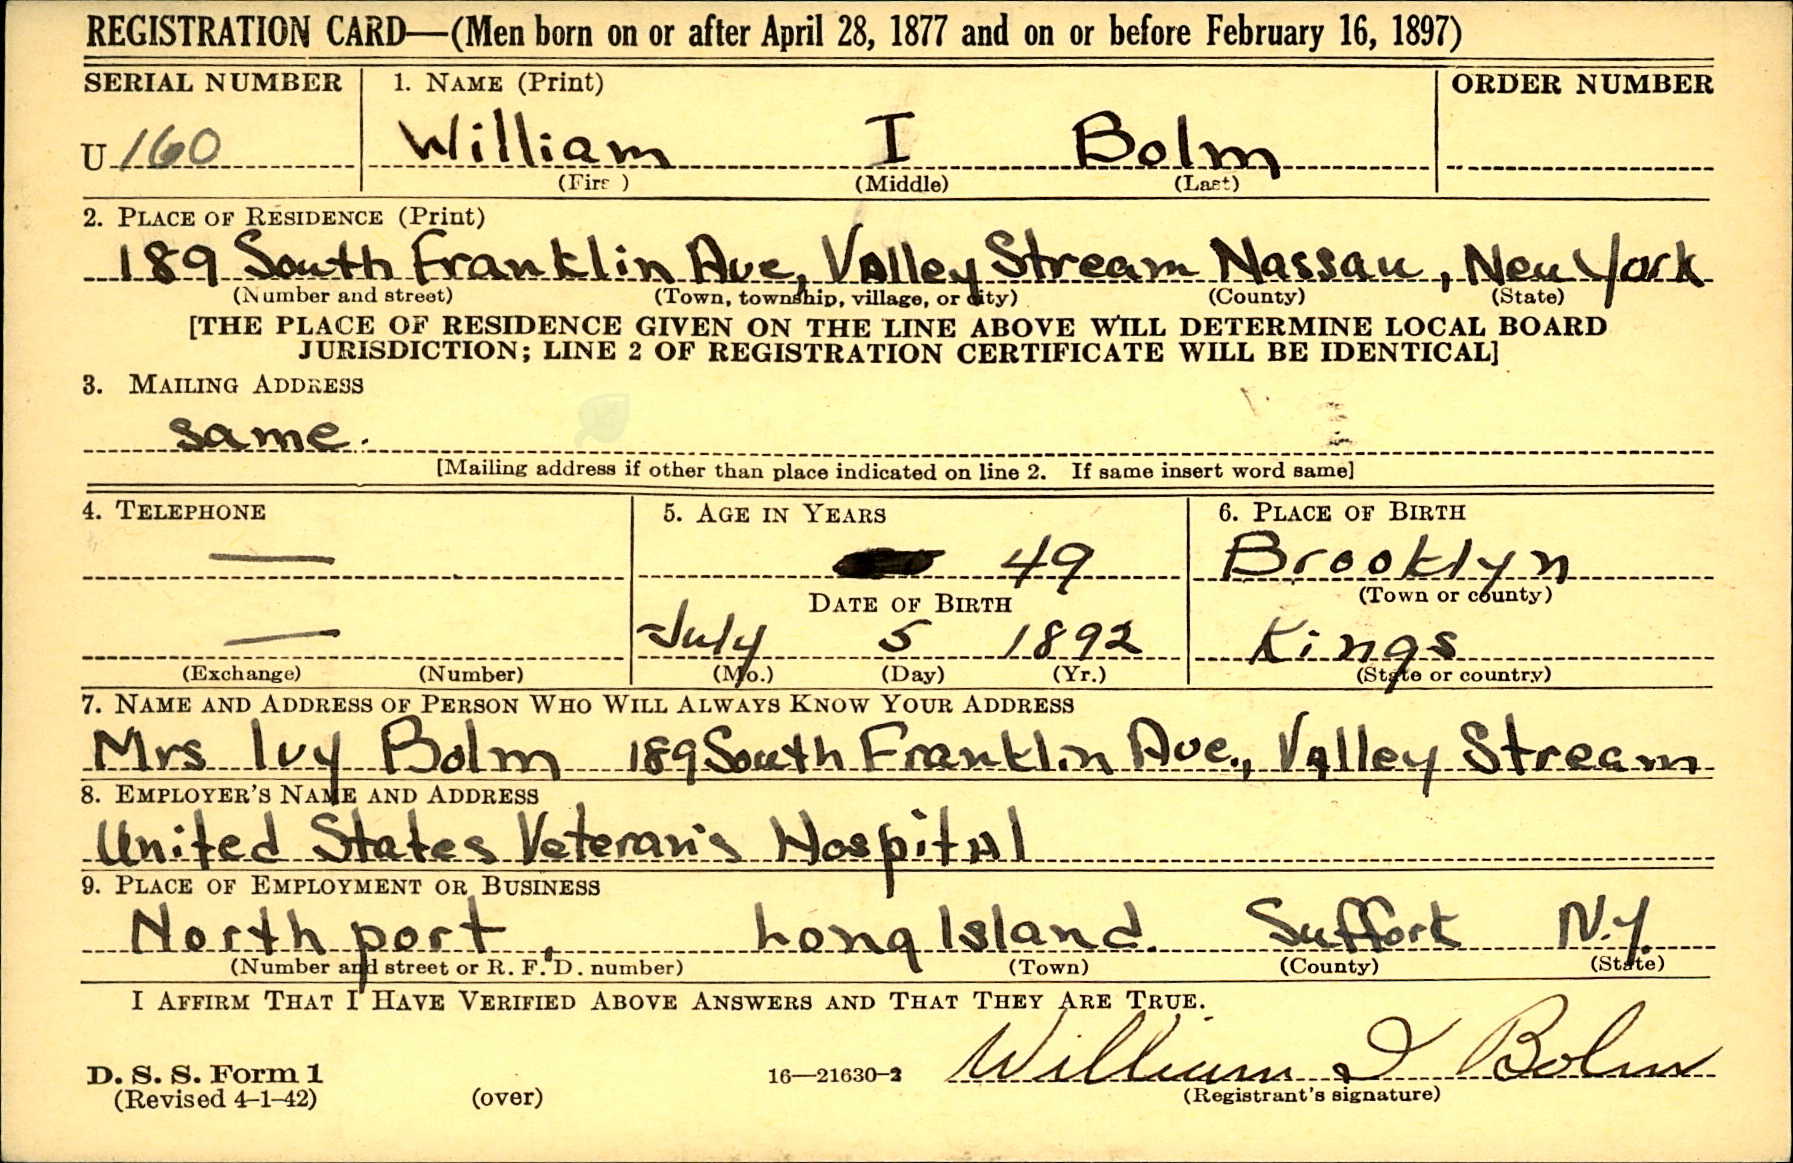 REGISTRATION CARD—(Men born on or after April 28, 1877 and on or before February 16, 1897)
SERIAL NUMBER 1. NAME (Print) ORDER NUMBER
U 160 William I Bolm
(Firs ) (Middle) (Last)
2. PLACE OF RESIDENCE (Print)
189 South Franklin Ave, Valley Stream Nassau, New York
(Number and street) (Town, township, village, or city) (County) (State)
[THE PLACE OF RESIDENCE GIVEN ON THE LINE ABOVE WILL DETERMINE LOCAL BOARD
JURISDICTION; LINE 2 OF REGISTRATION CERTIFICATE WILL BE IDENTICAL]
3. MAILING ADDRESS
same.
[Mailing address if other than place indicated on line 2. If same insert word same]
4. TELEPHONE 5. AGE IN YEARS 6. PLACE OF BIRTH
— 49 Brooklyn
DATE OF BIRTH (Town or county)
— July 5 1892 Kings
(Exchange) (Number) (Mo.) (Day) (Yr.) (State or country)
7. NAME AND ADDRESS OF PERSON WHO WILL ALWAYS KNOW YOUR ADDRESS
Mrs Ivy Bolm 189 South Franklin Ave., Valley Stream
8. EMPLOYER'S NAME AND ADDRESS
United States Veteran's Hospital
9. PLACE OF EMPLOYMENT OR BUSINESS
Northport, Long Island. Suffork N.Y.
(Number and street or R. F. D. number) (Town) (County) (State)
I AFFIRM THAT I HAVE VERIFIED ABOVE ANSWERS AND THAT THEY ARE TRUE.
William I Bolm
D. S. S. Form 1 16—21630-2
(Revised 4-1-42) (over) (Registrant's signature)